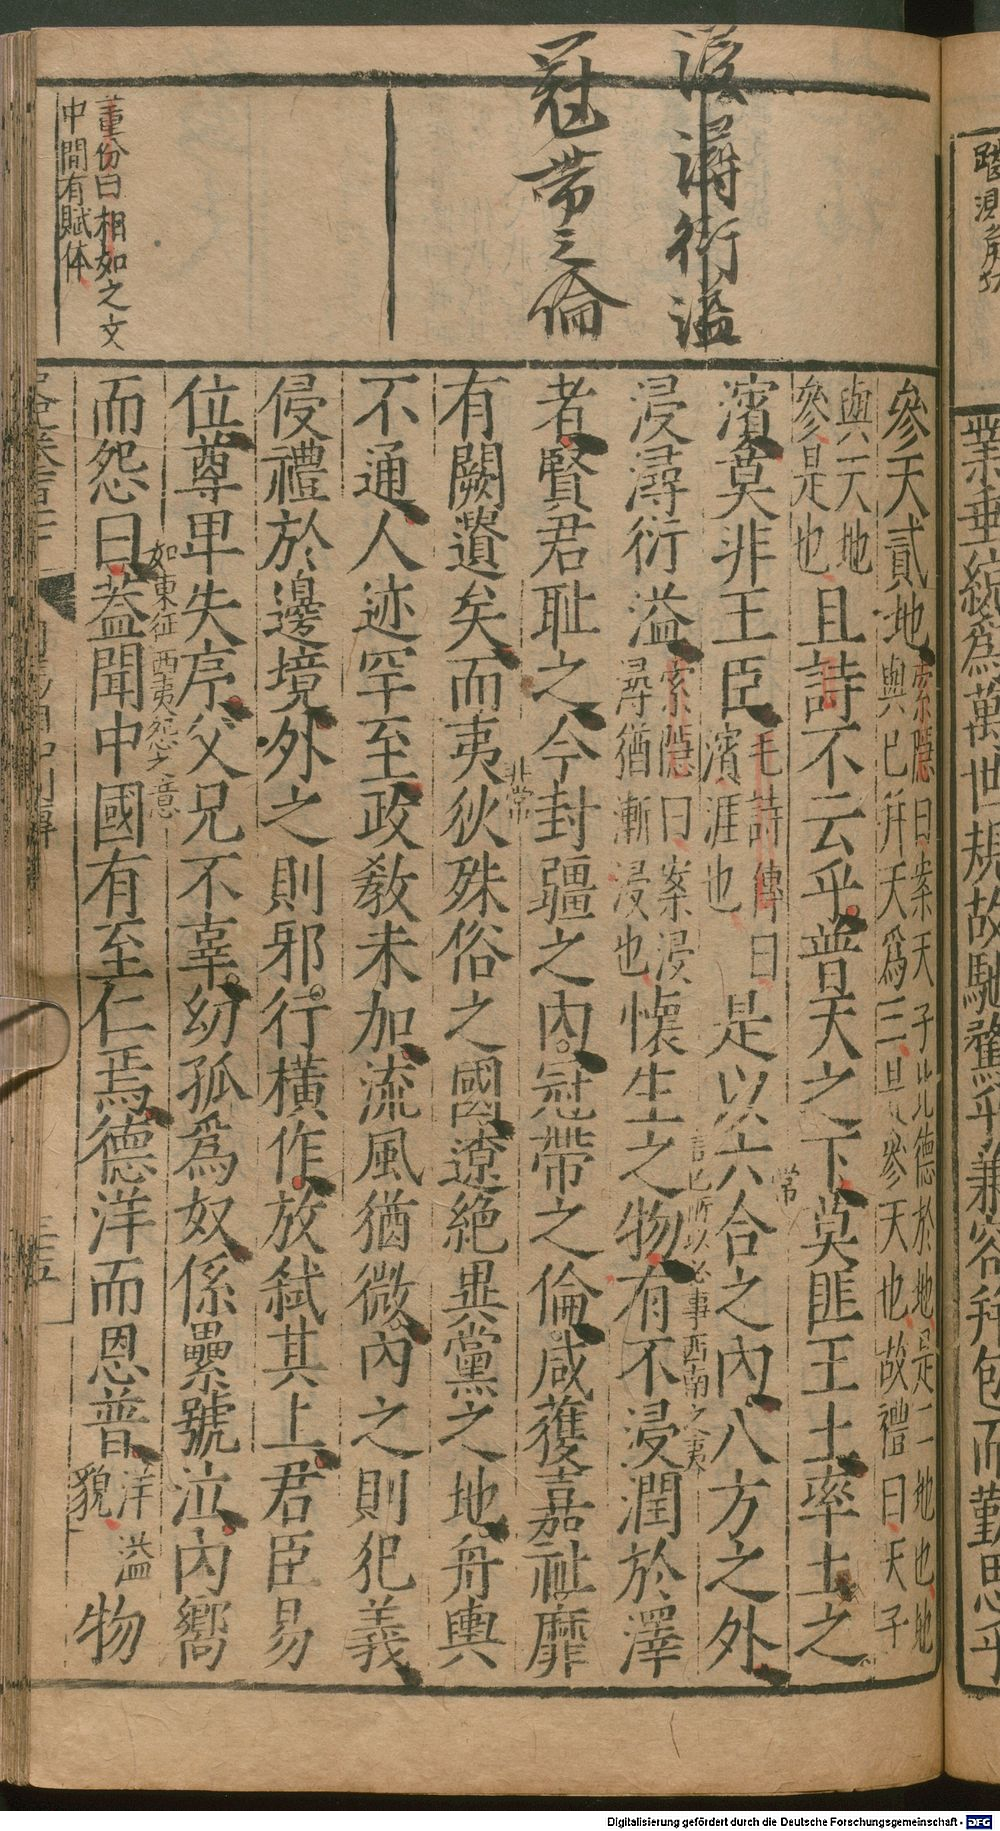 浸潯衍溢
冠帶之倫
董份曰相如之文
中間有賦体
參天貳地索隱曰案天子比德於地是二地也地
與己并天爲三是參天也故禮曰天子
與天地
參是也且詩不云乎普天之下莫匪王土率土之
濱莫非王臣毛詩傳曰
濱涯也是以六合之內八方之外
浸潯衍溢索隱曰案浸
潯猶漸浸也懷生之物有不浸潤於澤
者賢君耻之今封疆之內冠帶之倫咸獲嘉祉靡
有闕遺矣而夷狄殊俗之國遼絕異黨之地舟輿
不通人迹罕至政敎未加流風猶微內之則犯義
侵禮於邊境外之則邪行橫作放弑其上君臣易
位尊卑失序父兄不辜幼孤爲奴係纍號泣內嚮
而怨曰葢聞中國有至仁焉德洋而恩普洋溢
貌物
常
言己所以必事西南之夷
非常
如東征西夷怨之意
業垂統爲萬世規故馳騖乎兼容并包而勤思乎
Digitalisierung gefördert durch die Deutsche Forschungsgemeinschaft - DFG